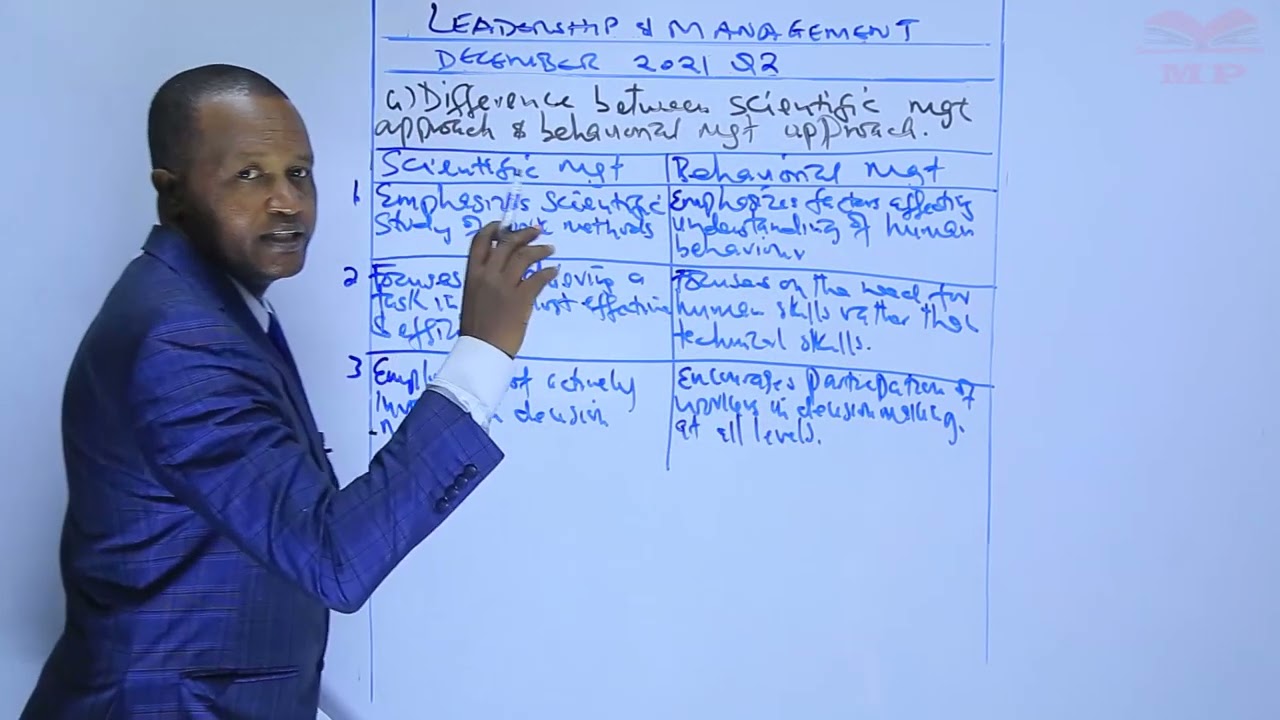 LEADERSHIP & MANAGEMENT
DECEMBER 2021 Q2
a) Difference between scientific mgt
approach & behavioral mgt approach.
Scientific mgt
Behavioral mgt
1
Emphasizes scientific
study of work methods
Emphasizes factors affecting
understanding of human
behaviour
2
Focuses a
task effective
&
Focuses on the need for
human skills rather than
technical skills.
3
not actively
decision
Encourages participation of
workers in decision making
at all levels.
MP